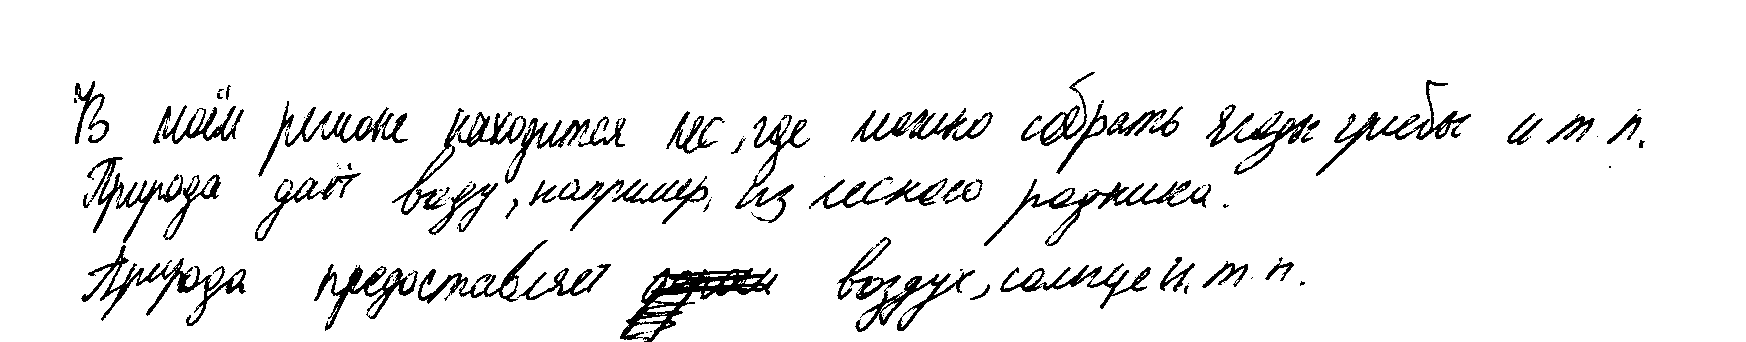 В моём регионе находится лес, где можно собрать ягоды грибы и т. п.
Природа даёт воду, например, из лесного родника.
Природа предоставляет воздух, солнце и т. п.